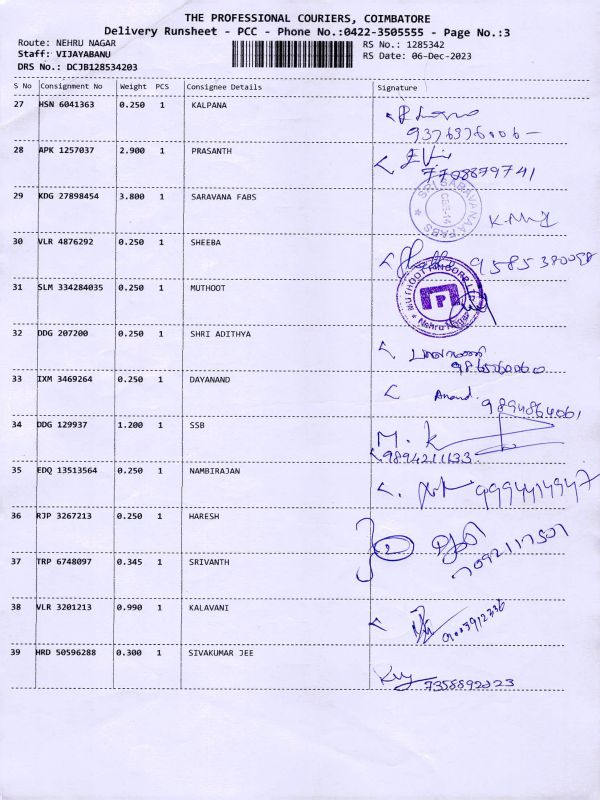 THE PROFESSIONAL COURIERS, COIMBATORE
Delivery Runsheet - PCC - Phone No.:0422-3505555 - Page No.:3
Route: NEHRU NAGAR RS No.: 1285342
Staff: VIJAYABANU RS Date: 06-Dec-2023
DRS No.: DCJB128534203
S No Consignment No Weight PCS Consignee Details Signature
27 HSN 6041363 0.250 1 KALPANA
28 APK 1257037 2.900 1 PRASANTH
7708879741
29 KDG 27898454 3.800 1 SARAVANA FABS
SRI SARAVANAA FABS
30 VLR 4876292 0.250 1 SHEEBA
9585380098
31 SLM 334284035 0.250 1 MUTHOOT
MUTHOOT FINCORP LTD
Nehru Nagar
32 DDG 207200 0.250 1 SHRI ADITHYA
33 IXM 3469264 0.250 1 DAYANAND
Anand. 9894864061
34 DDG 129937 1.200 1 SSB
M. K
9894211133
35 EDQ 13513564 0.250 1 NAMBIRAJAN
9994414947
36 RJP 3267213 0.250 1 HARESH
2
7092117501
37 TRP 6748097 0.345 1 SRIVANTH
38 VLR 3201213 0.990 1 KALAVANI
39 HRD 50596288 0.300 1 SIVAKUMAR JEE
9358892223